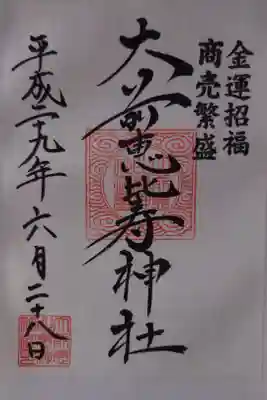 金運招福
商売繁盛
大前恵比寿神社
平成二十九年六月二十八日